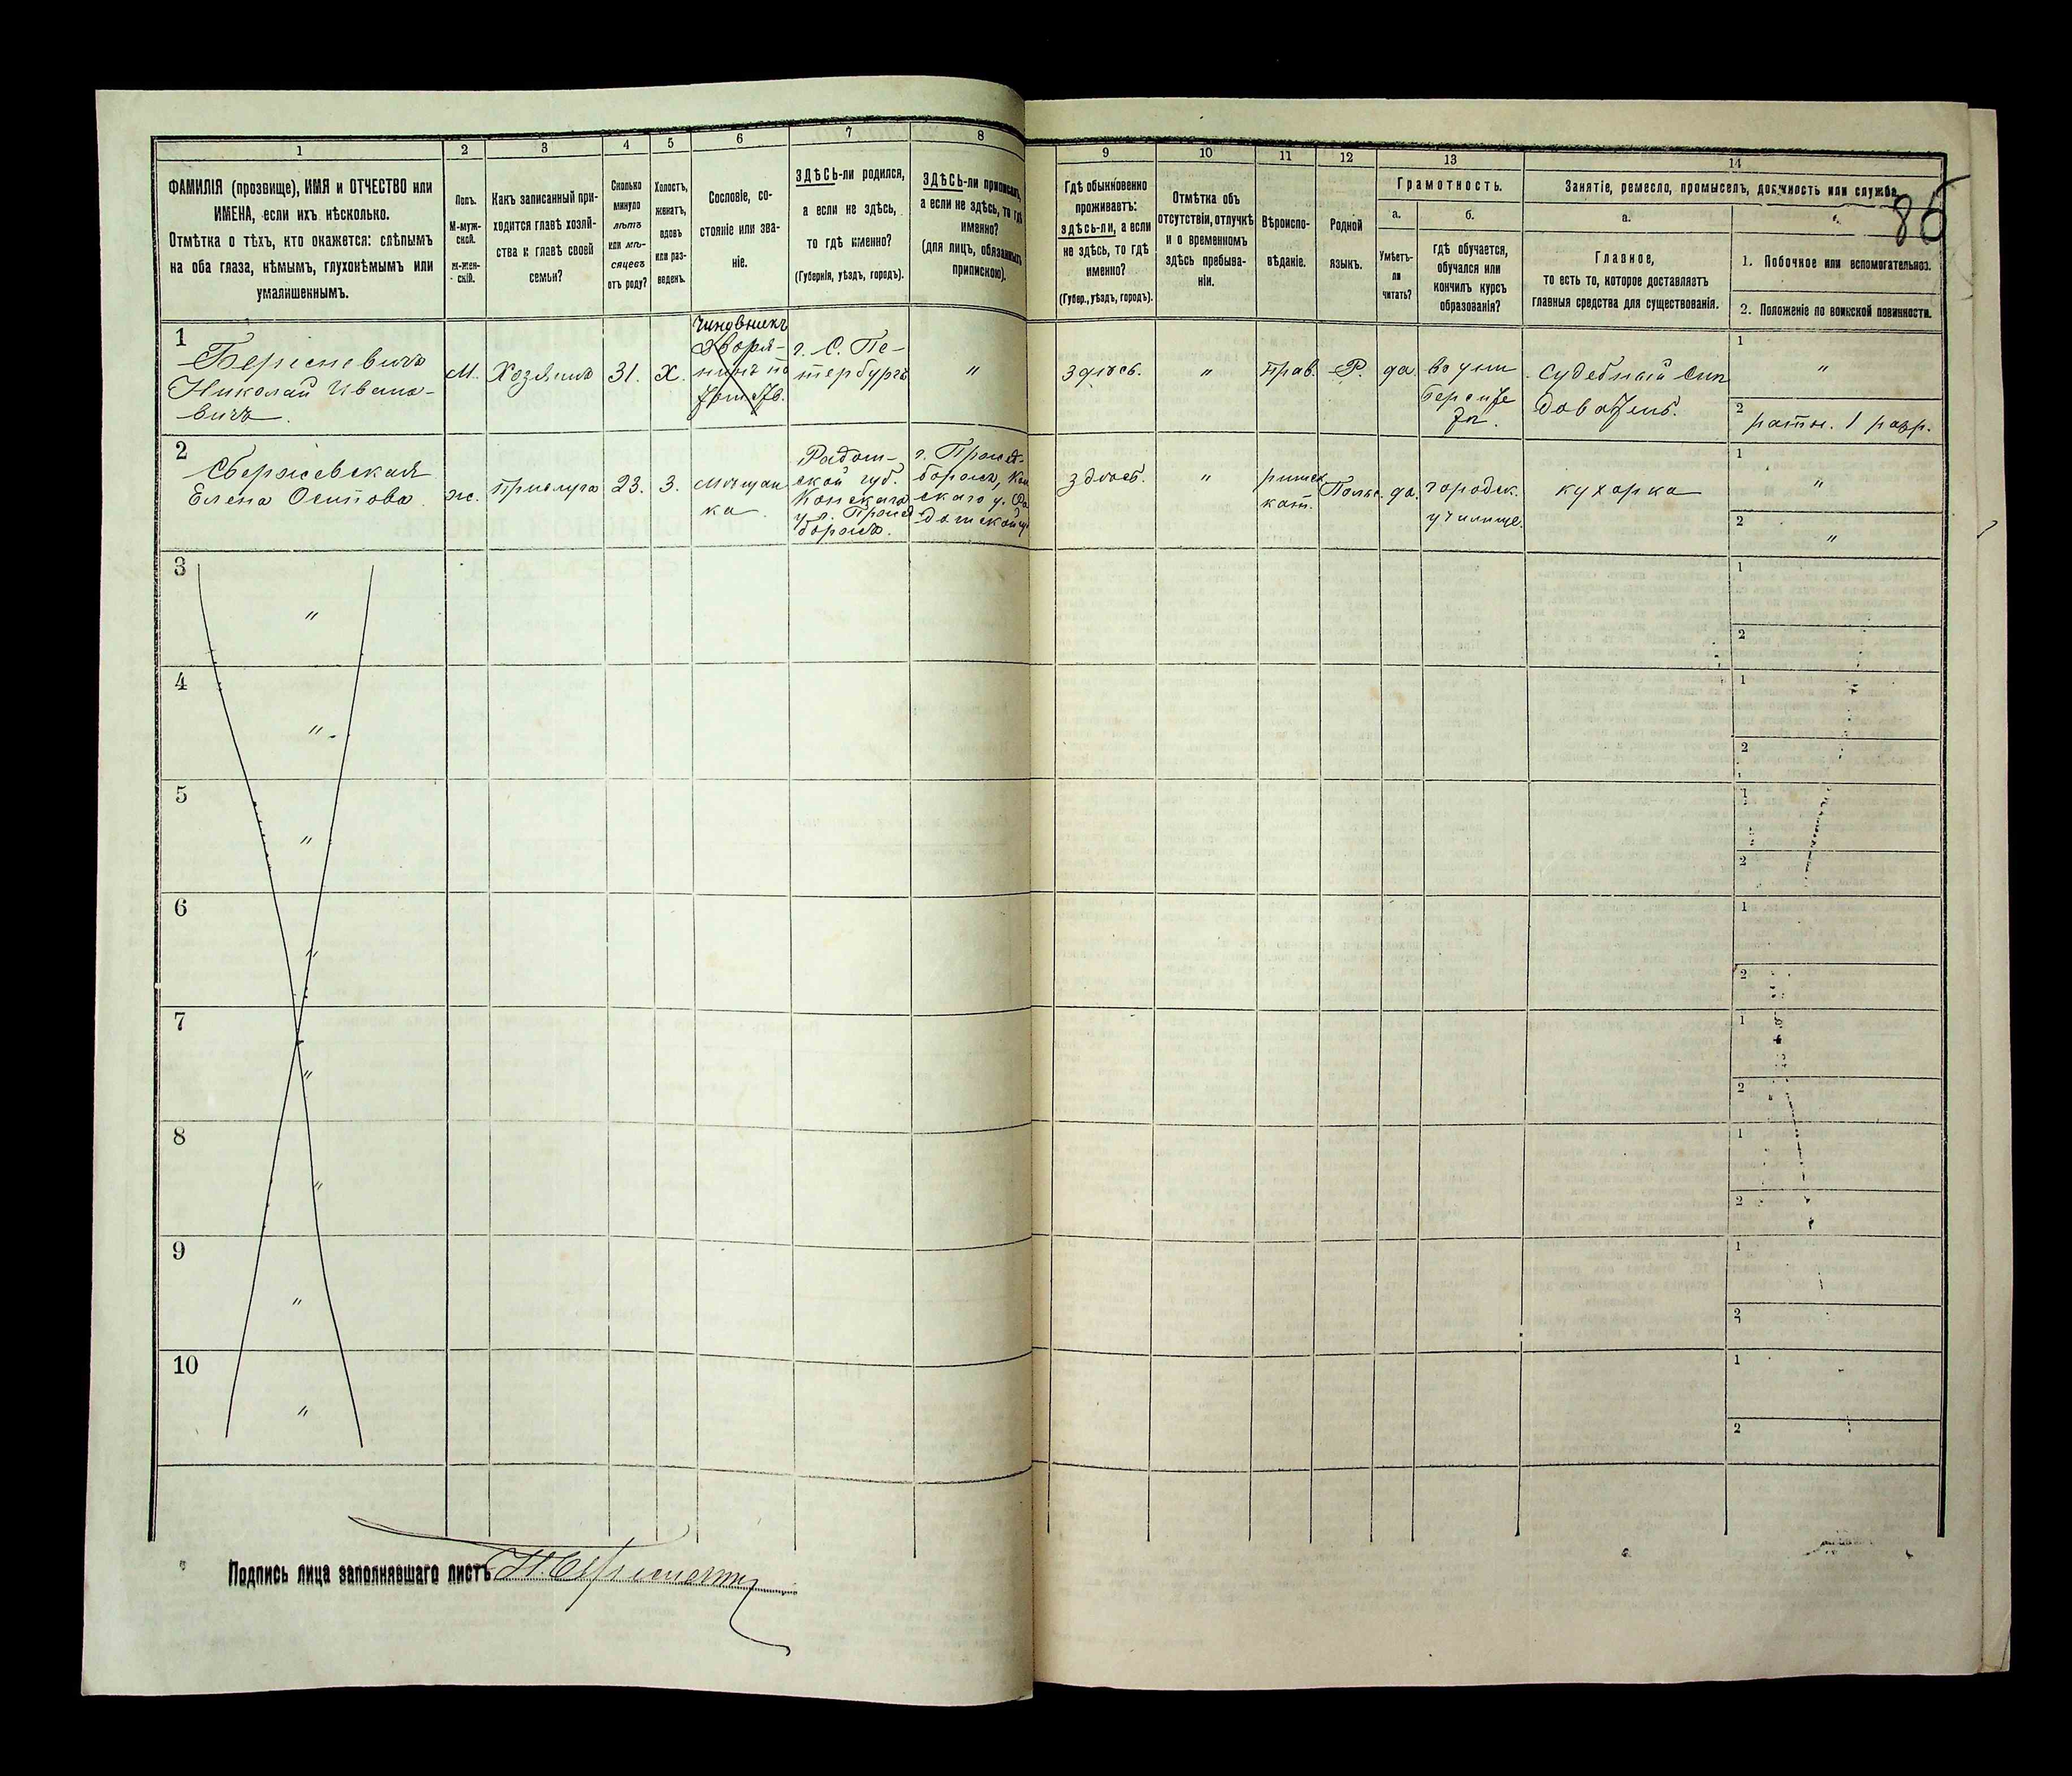 86
1
2
3
4
5
6
7
8
9
10
11
12
13
14
ФАМИЛІЯ (прозвище), ИМЯ и ОТЧЕСТВО или
ИМЕНА, если ихъ нѣсколько.
Отмѣтка о тѣхъ, кто окажется: слѣпымъ
на оба глаза, нѣмымъ, глухонѣмымъ или
умалишеннымъ.
Полъ.
М-муж-
ской.
ж-жен-
скій.
Какъ записанный при-
ходится главѣ хозяй-
ства и главѣ своей
семьи?
Сколько
минуло
лѣтъ
или мѣ-
сяцевъ
отъ роду?
Холостъ,
женатъ,
вдовъ
или раз-
веденъ.
Сословіе, со-
стояніе или зва-
ніе.
ЗДѢСЬ-ли родился,
а если не здѣсь,
то гдѣ именно?
(Губернія, уѣздъ, городъ).
ЗДѢСЬ-ли приписанъ,
а если не здѣсь, то гдѣ
именно?
(для лицъ, обязанныхъ
припискою).
Гдѣ обыкновенно
проживаетъ:
здѣсь-ли, а если
не здѣсь, то гдѣ
именно?
(Губер., уѣздъ, городъ).
Отмѣтка объ
отсутствіи, отлучкѣ
и о временномъ
здѣсь пребыва-
ніи.
Вѣроиспо-
вѣданіе.
Родной
языкъ.
Грамотность.
а.
б.
Умѣетъ-
ли
читать?
гдѣ обучается,
обучался или
кончилъ курсъ
образованія?
Занятіе, ремесло, промыселъ, должность или служба.
а.
Главное,
то есть то, которое доставляетъ
главныя средства для существованія.
1. Побочное или вспомогательное.
2. Положеніе по воинской повинности.
1
Николай Ивано-
вичъ
М.
Хозяинъ
31.
Х.
Чиновникъ
Дворя-
нинъ по
г. С. Пе-
тербургъ
"
здѣсь.
"
прав.
Р.
да
во уни
верситете
Судебный Слѣ
дователь.
1
"
2
ратн. 1 разр.
2
Сбержевская
Елена Осипова
ж.
Прислуга
23.
З.
мѣщан
ка
Радом-
ской губ.
Конскаго
у. г.
г.
здѣсь.
"
римск
кат.
Польс.
да.
городск.
училище.
кухарка
1
"
2
"
3
"
1
2
4
"
1
2
5
"
1
2
6
"
1
2
7
"
1
2
8
"
1
2
9
"
1
2
10
"
1
2
Подпись лица заполнявшаго листъ